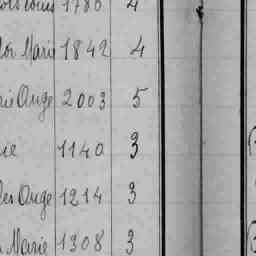 1780 4
Marie 1842 4
Ange 2003 5
1140 3
Ange 1214 3
Marie 1308 3